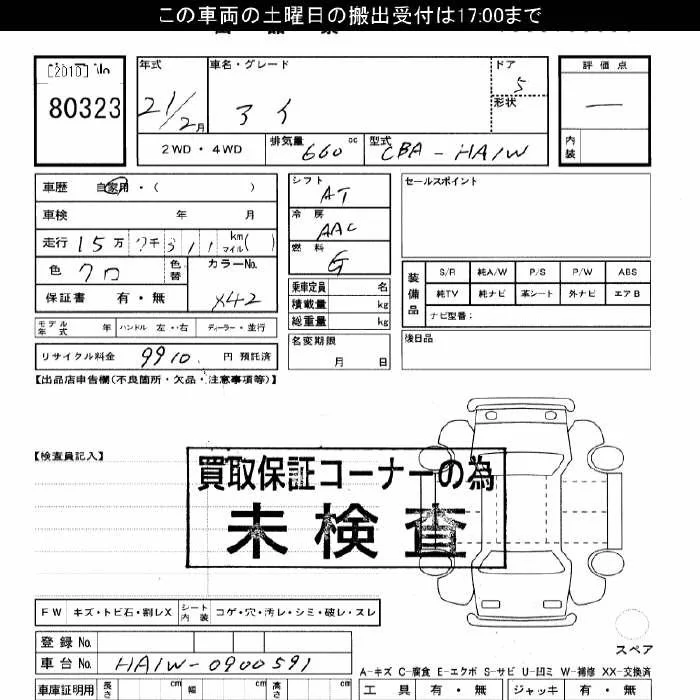 この車両の土曜日の搬出受付は17:00まで
[2010] No
80323
年式
21/2月
車名・グレード
アイ
ドア
5
形状
評価点
—
内装
2WD・4WD
排気量
660 cc
型式
CBA-HA1W
車歴 自家用・( )
車検 年 月
走行 15万7千311 km マイル( )
色 クロ
色替
カラーNo.
X42
保証書 有・無
モデル年式 年 ハンドル 左・右 ディーラー・並行
リサイクル料金 9910 円 預託済
シフト
AT
冷房
AAC
燃料
G
乗車定員 名
積載量 kg
総重量 kg
名変期限
月 日
セールスポイント
装備品
S/R 純A/W P/S P/W ABS
純TV 純ナビ 革シート 外ナビ エアB
ナビ型番:
後日品
【出品店申告欄(不良箇所・欠品・注意事項等)】
【検査員記入】
買取保証コーナーの為
未検査
FW キズ・トビ石・割レX シート内装 コゲ・穴・汚レ・シミ・破レ・スレ
スペア
登録No.
車台No. HA1W-0900591
A-キズ C-腐食 E-エクボ S-サビ U-凹ミ W-補修 XX-交換済
車庫証明用 長さ cm 幅 cm 高さ cm
工具 有・無 ジャッキ 有・無